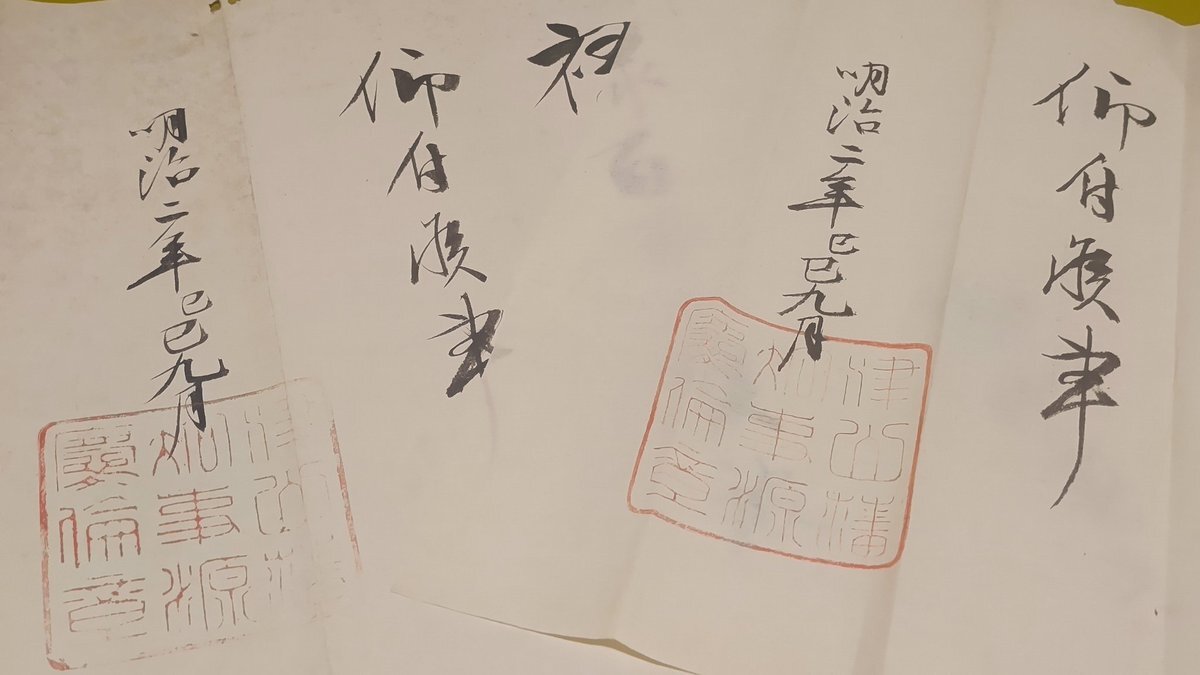 仰付候事
明治二年己巳九月
津山藩
知事源
慶倫章
被
仰付候事
明治二年己巳九月
津山藩
知事源
慶倫章